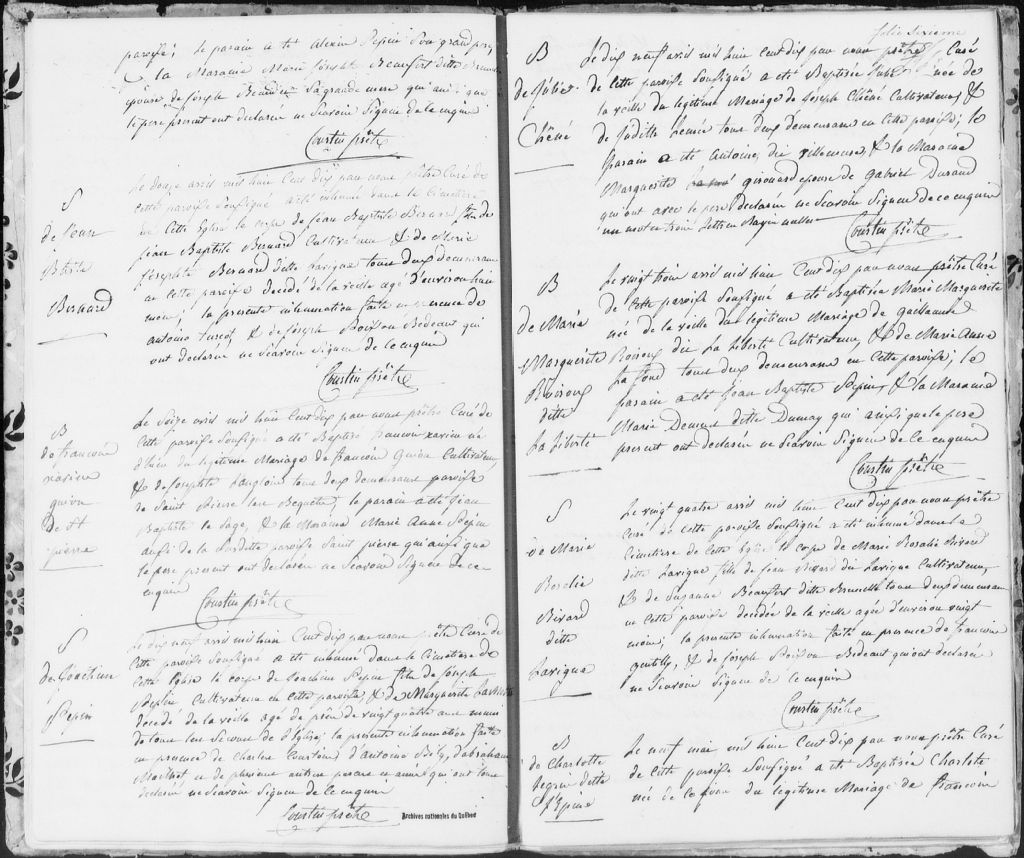 paroisse; Le parain a été Alexis Pepin Son grand pere
& la Maraine Marie Joseph Beaufort ditte Brunel
épouse de Joseph Beaudet Sa grande mere qui ainsi que
le pere present ont declaré ne Scavoir Signer de ce enquis
Courtin prêtre
S
de Jean
Bte
Bernard
Le douze avril mil huit Cent dix par nous prêtre Curé de
Cette paroisse Soussigné a été inhumé dans le Cimetiere
de Cette Eglise le corps de Jean Baptiste Bernard fils de
Jean Baptiste Bernard Cultivateur & de Marie
Josephte Bernard ditte Lavigne tous deux demeurans
en Cette paroisse decedé de la veille agé d'environ huit
mois; la presente inhumation faite en presence de
Antoine & de Joseph Poisson Bedeaut qui
ont declaré ne Scavoir Signer de ce enquis
Courtin prêtre
B
de francois
xavier
guion
de St
pierre
Le Seize avril mil huit Cent dix par nous prêtre Curé de
Cette paroisse Soussigné a été Baptisé francois xavier né
d'hier du legitime Mariage de francois Guion Cultivateur
& de Josephte Langlois tous deux demeurans paroisse
de Saint Pierre les Bequets; le parain a été Jean
Baptiste le Sage, & la Maraine Marie Anne Pepin
aussi de la Susditte paroisse Saint pierre qui ainsi que
le pere present ont declaré ne Scavoir Signer de ce
enquis
Courtin prêtre
S
de Joachim
Pepin
Le dix neuf avril mil huit Cent dix par nous prêtre Curé de
Cette paroisse Soussigné a été inhumé dans le Cimetiere de
Cette Eglise le corps de Joachim Pepin fils de Joseph
Pepin Cultivateur en Cette paroisse & de Marguerite
decedé de la veille agé de près de vingt quatre ans muni
de tous les Secours de l'Eglise; la presente inhumation faite
en presence de Charles Courtois, d'antoine Bily, d'abraham
& de plusieurs autres parens et amis qui ont tous
declaré ne Scavoir Signer de ce enquis
Courtin prêtre
Archives nationales du Québec
folio Sixieme
B
de Julie
Chêné
Le dix neuf avril mil huit Cent dix par nous prêtre, Curé
de Cette paroisse Soussigné a été Baptisée Julie née de
la veille du legitime Mariage de Joseph Chêné Cultivateur, &
de Judithe tous deux demeurans en Cette paroisse; le
parain a été Antoine, dit Villeneuve, & la Maraine
Marguerite girouard epouse de Gabriel Durand
qui ont avec le pere declaré ne Scavoir Signer de ce enquis
un mot en trois lettres Rayé nulle
Courtin prêtre
B
de Marie
Marguerite
ditte
La Liberté
Le vingt trois avril mil huit Cent dix par nous prêtre Curé
de Cette paroisse Soussigné a été Baptisée Marie Marguerite
née de la veille du legitime Mariage de guillaume
dit La Liberté Cultivateur, & de Marie Anne
La fond tous deux demeurans en Cette paroisse; le
parain a été Jean Baptiste Pepin, & la Maraine
Marie Demers ditte Dumay qui ainsi que le pere
present ont declaré ne Scavoir Signer de ce enquis
Courtin prêtre
S
de Marie
Rosalie
Rivard
ditte
Lavigne
Le vingt quatre avril mil huit Cent dix par nous prêtre
Curé de Cette paroisse Soussigné a été inhumé dans le
Cimetiere de Cette Eglise le corps de Marie Rosalie Rivard
ditte Lavigne fille de Jean Rivard dit Lavigne Cultivateur,
& de Suzanne Beaufort ditte Brunelle tous deux demeurans
en Cette paroisse decedée de la veille agée d'environ vingt
mois; la presente inhumation faite en presence de francois
gentilly, & de Joseph Poisson Bedeaut qui ont declaré
ne Scavoir Signer de ce enquis
Courtin prêtre
B
de Charlotte
ditte
L'Epine
Le neuf mai mil huit Cent dix par nous prêtre Curé
de Cette paroisse Soussigné a été Baptisée Charlotte
née de ce jour du legitime Mariage de francois